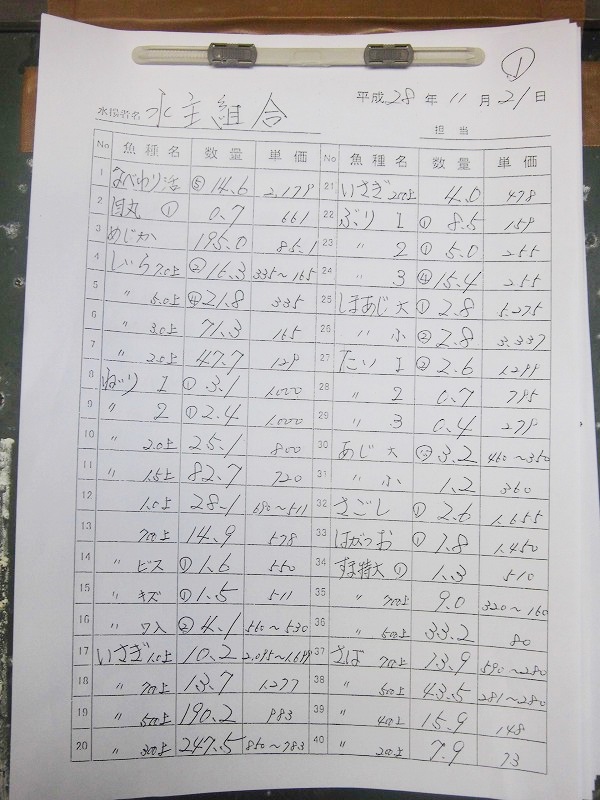 ①
平成28年11月21日
水揚者名 水主組合
担当
No 魚種名 数量 単価
1 なべわり活 ⑤ 14.6 2,179
2 目丸 ① 0.7 661
3 めじか 195.0 85.1
4 しいら 7.0上 ② 15.3 335～165
5 〃 5.0上 ④ 21.8 335
6 〃 3.0上 71.3 165
7 〃 2.0上 47.7 129
8 I ① 3.1 1,000
9 〃 2 ① 2.4 1,000
10 〃 2.0上 25.1 800
11 〃 1.5上 82.7 720
12 1.0上 28.1 690～511
13 700上 14.9 578
14 〃 ビス ① 1.6 550
15 〃 キズ ① 1.5 511
16 〃 ② 4.1 560～530
17 いさぎ 1.0上 10.2 2,095～1,699
18 〃 700上 13.7 1,277
19 〃 500上 190.2 983
20 〃 300上 247.5 850～783
No 魚種名 数量 単価
21 いさぎ 200上 4.0 478
22 ぶり I ① 8.5 159
23 〃 2 ① 5.0 255
24 〃 3 ④ 15.4 255
25 しまあじ 大 ① 2.8 5,275
26 〃 小 ② 2.8 3,337
27 たい I ② 2.6 1,299
28 〃 2 0.7 795
29 〃 3 0.4 279
30 あじ 大 3.2 460～350
31 〃 小 1.2 360
32 さごし ① 2.6 1,655
33 はがつお ① 1.8 1,450
34 すま特大 ① 1.3 510
35 〃 700上 9.0 320～160
36 〃 500上 33.2 80
37 さば 700上 13.9 590～280
38 〃 500上 43.5 281～280
39 〃 400上 15.9 148
40 〃 200上 7.9 73